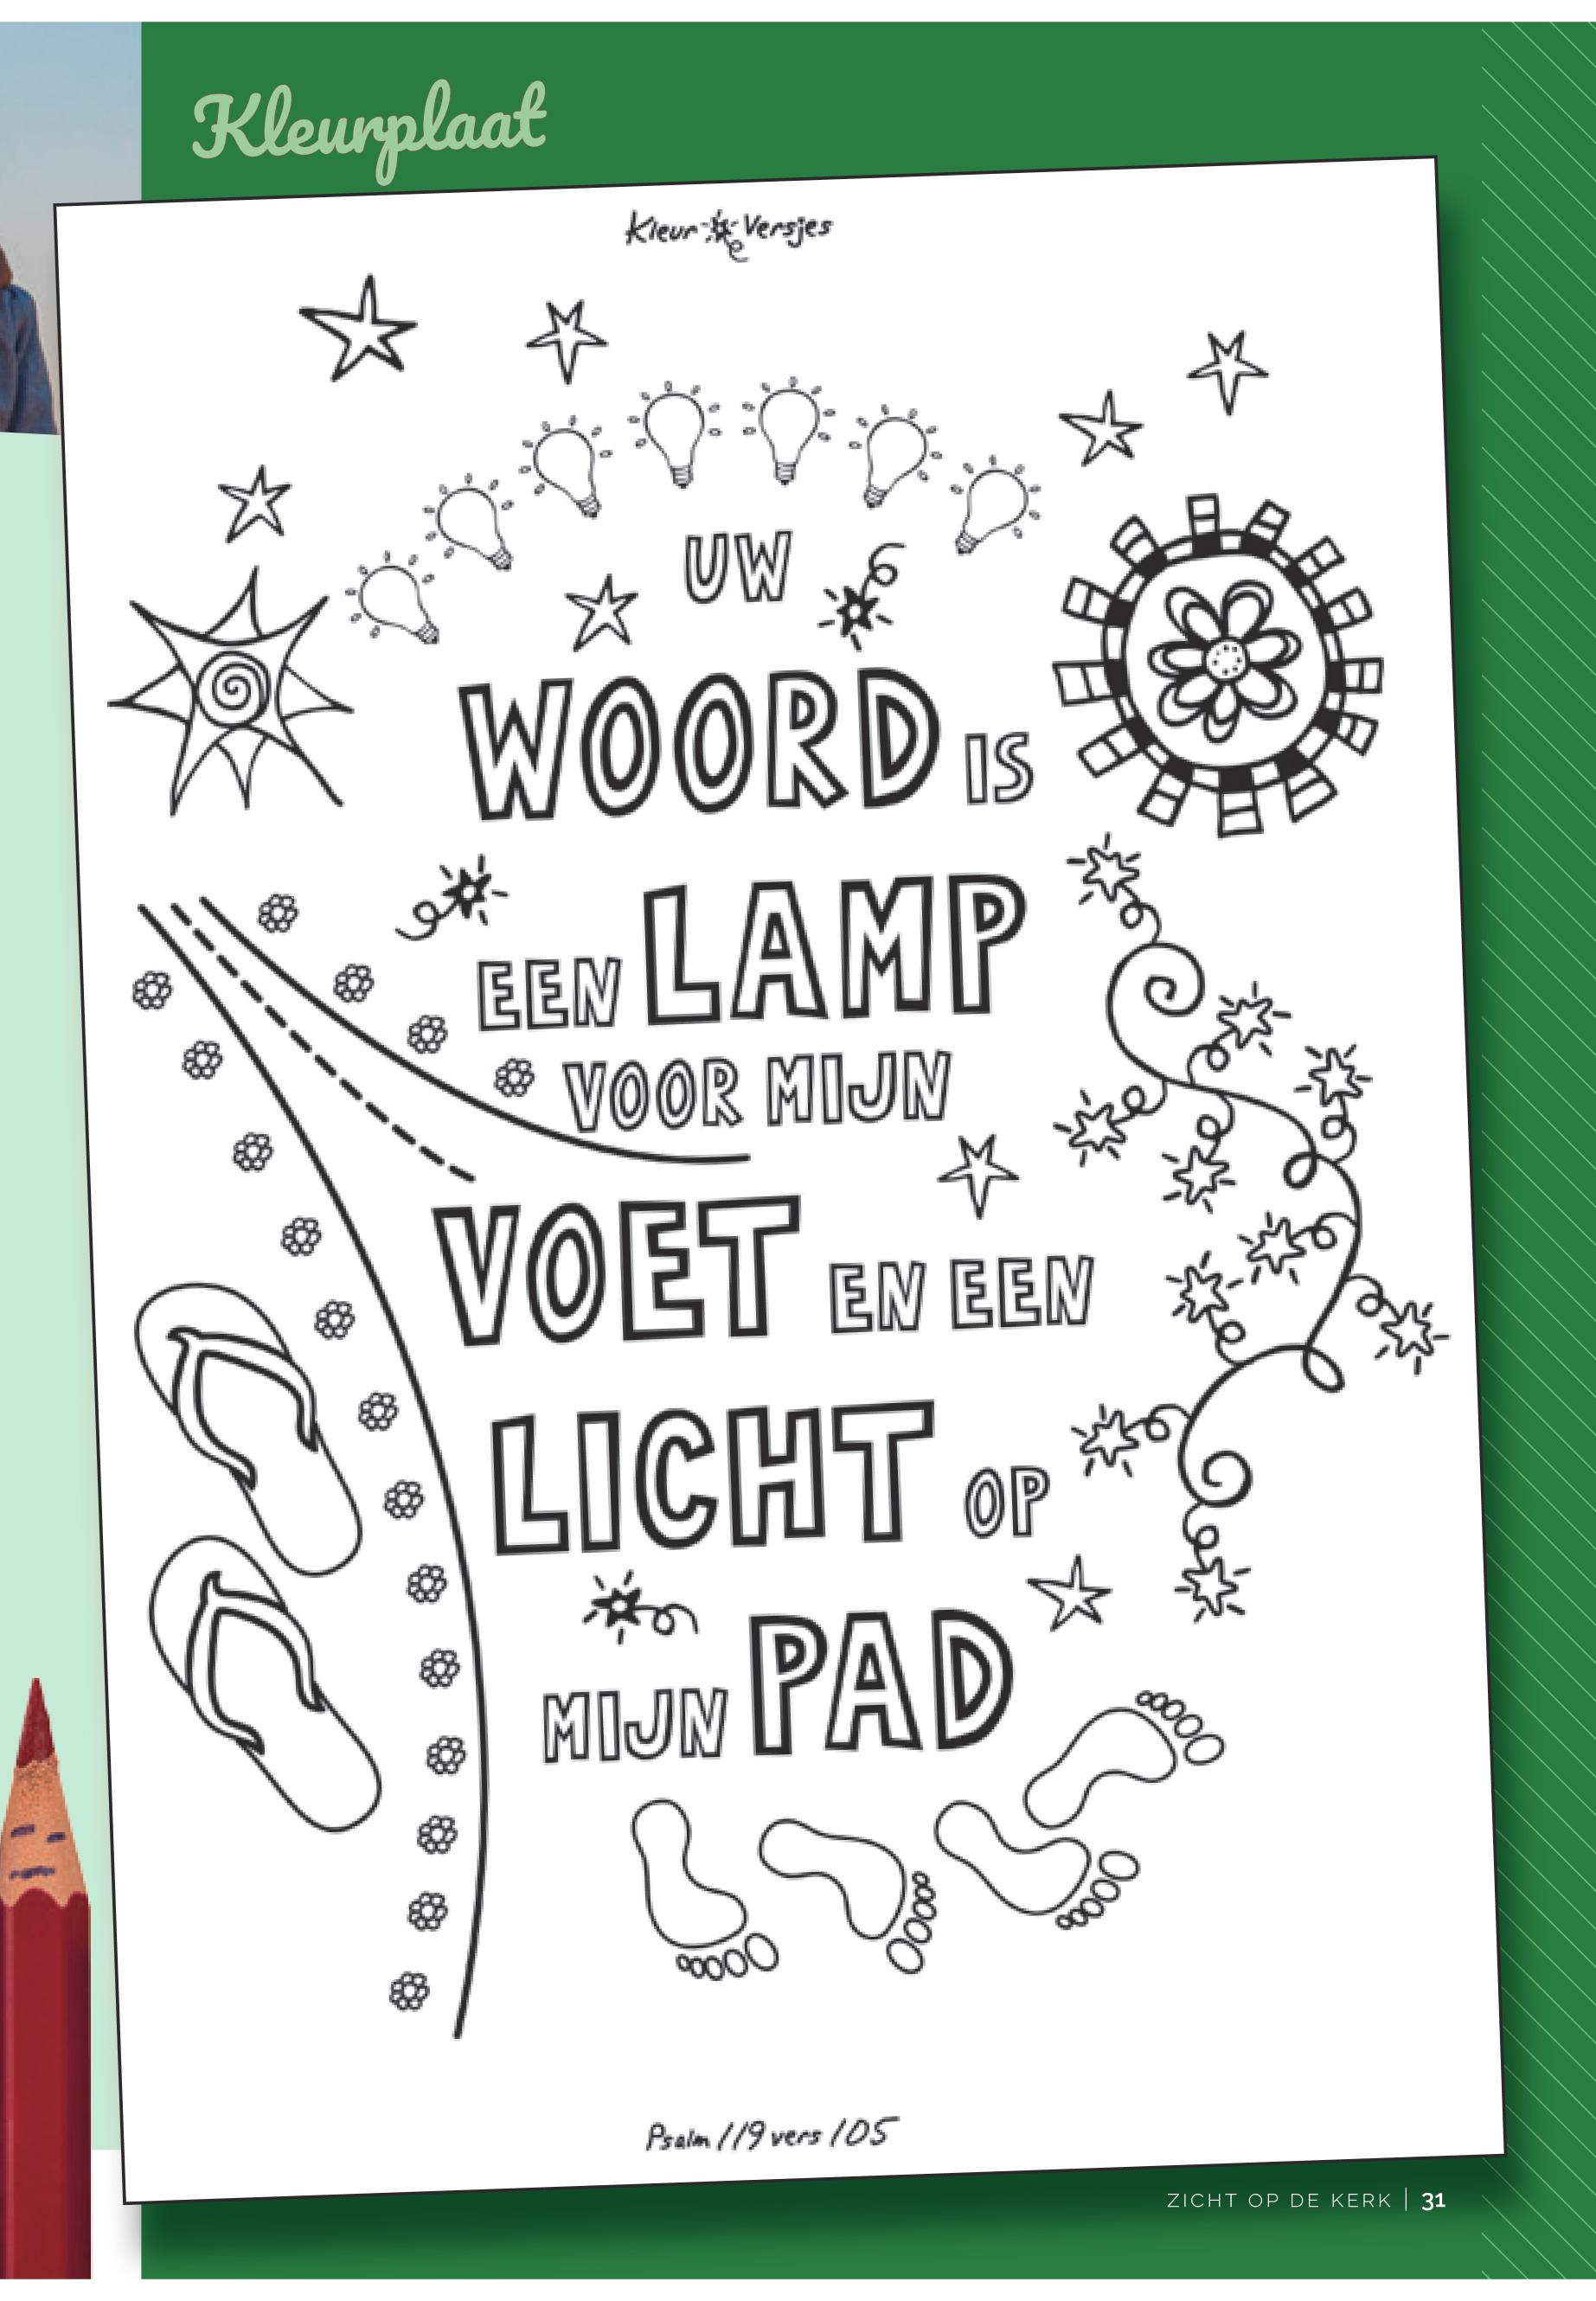 Kleurplaat
Kleur Versjes
UW
WOORD IS
EEN LAMP
VOOR MIJN
VOET EN EEN
LICHT OP
MIJN PAD
Psalm 119 vers 105
ZICHT OP DE KERK | 31